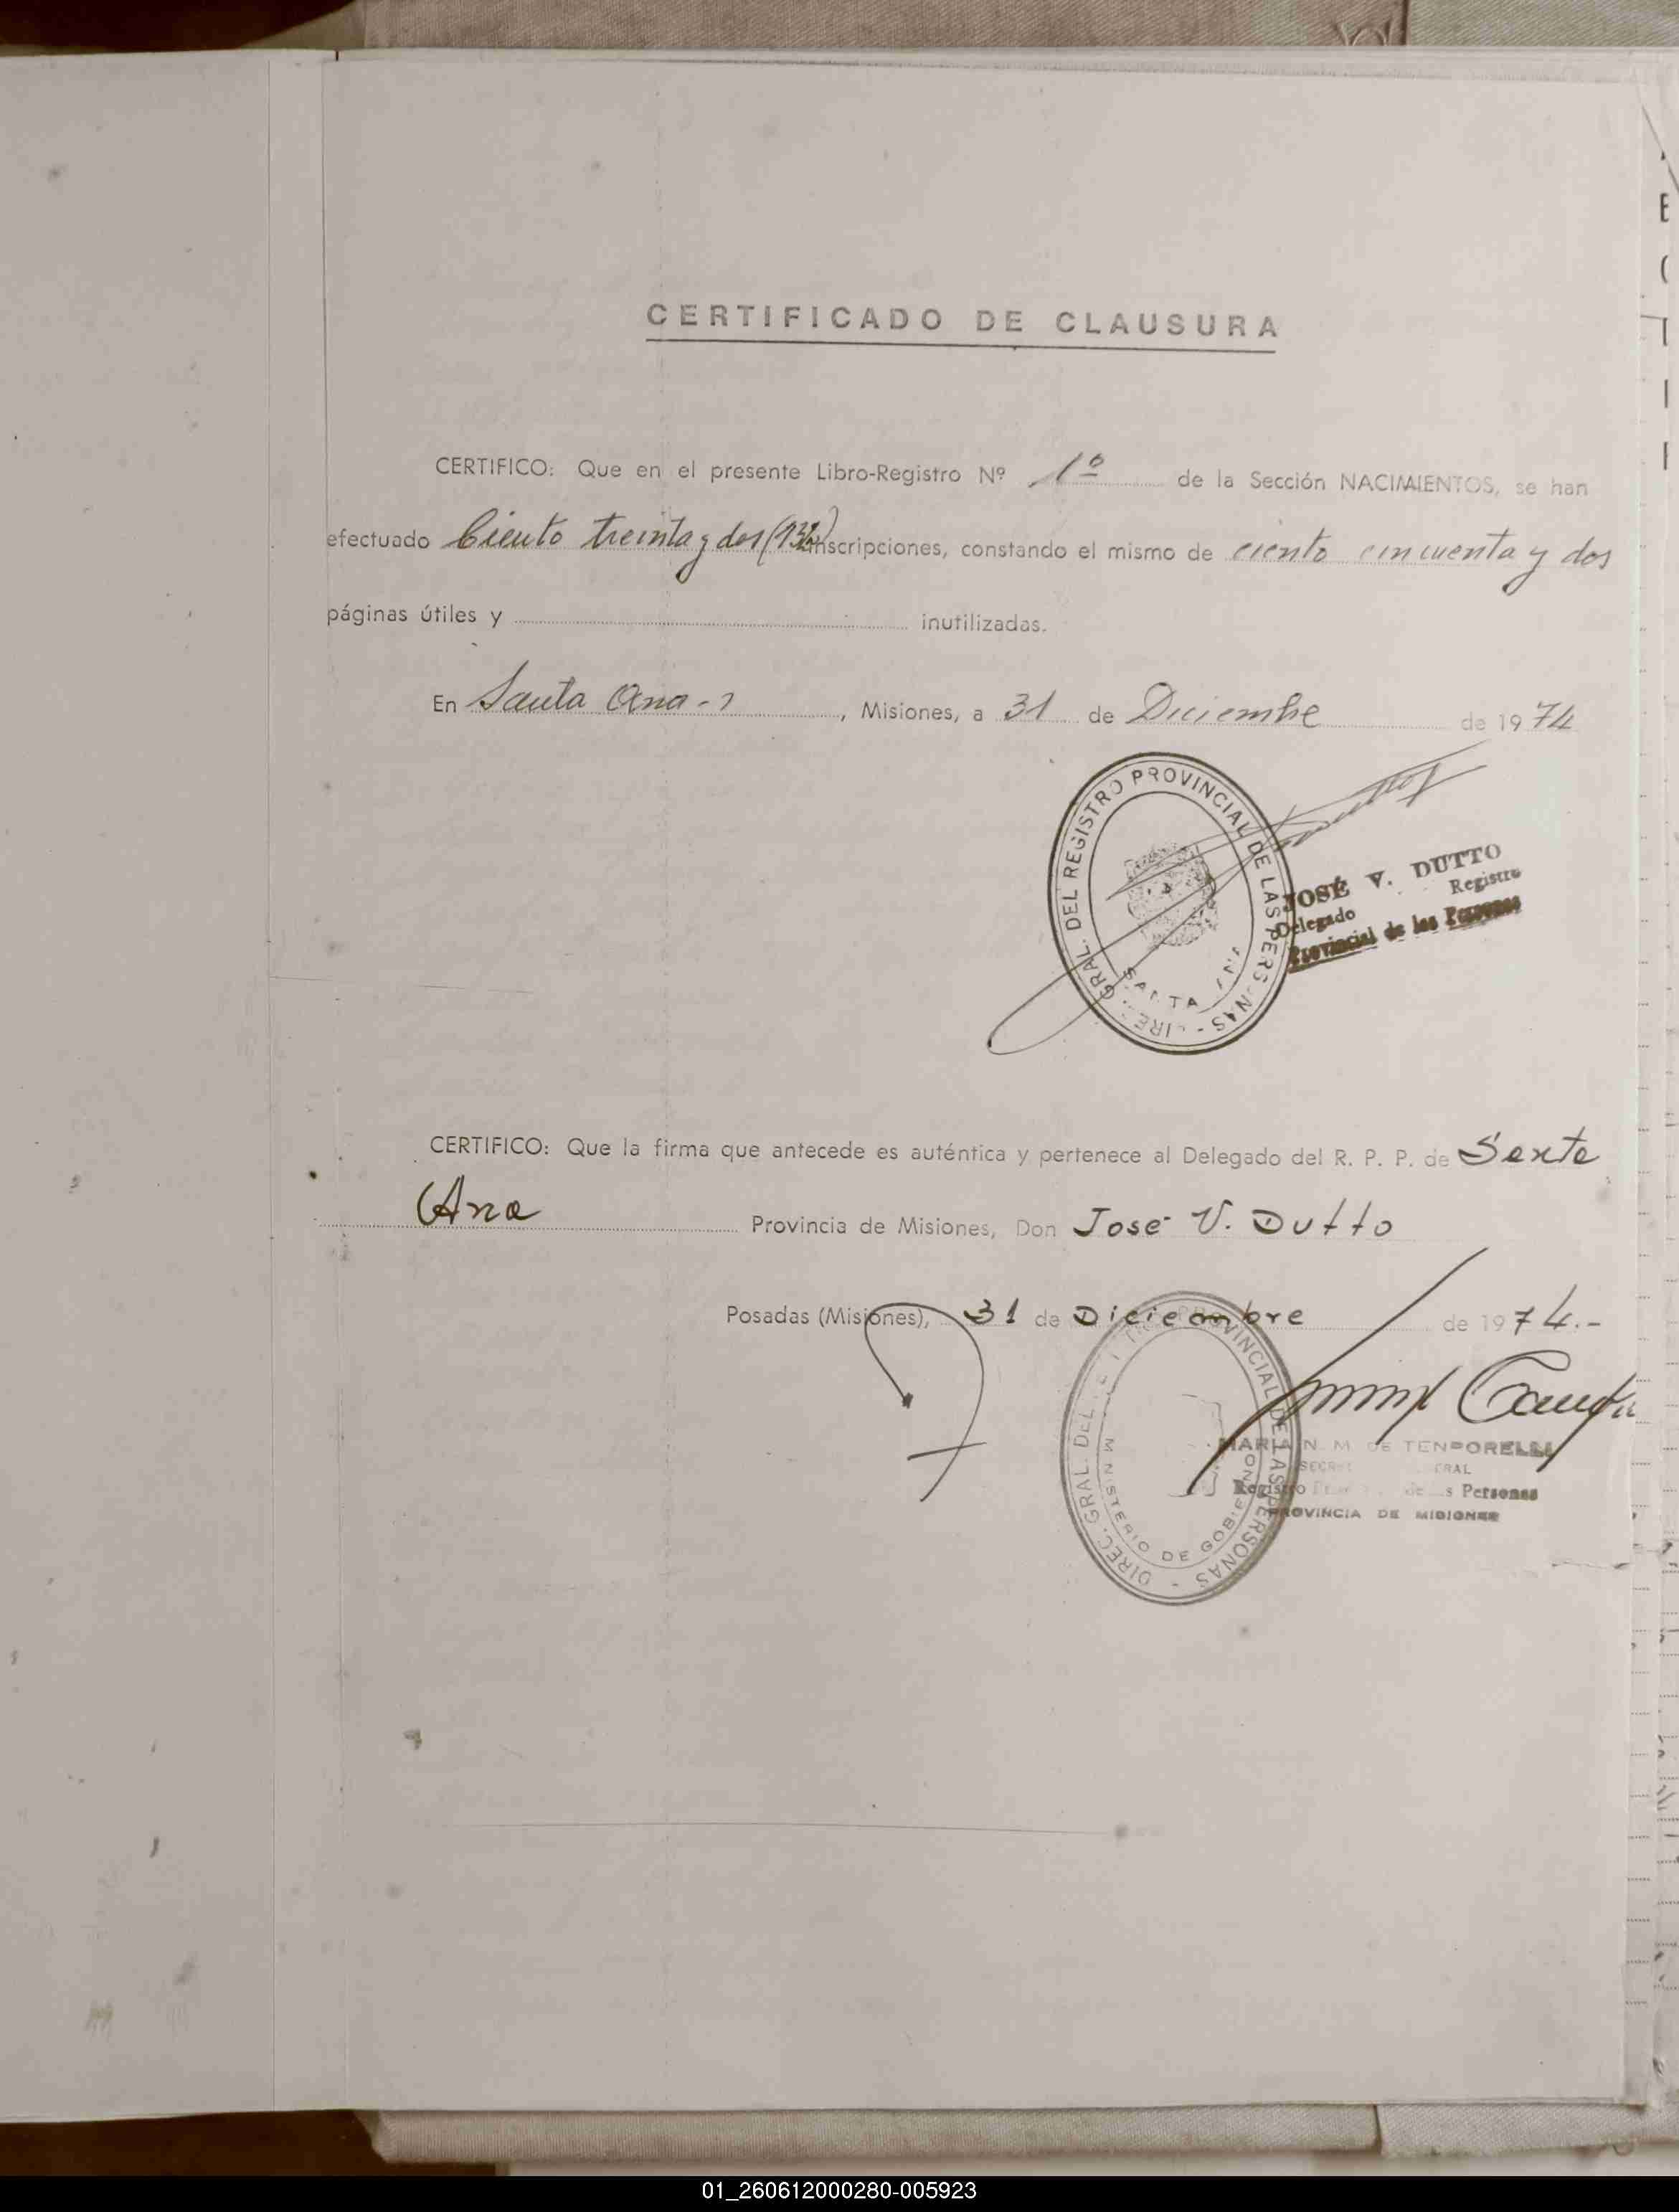 CERTIFICADO DE CLAUSURA
CERTIFICO: Que en el presente Libro-Registro Nº 1º de la Sección NACIMIENTOS, se han
efectuado Ciento treinta y dos (132) inscripciones, constando el mismo de ciento cincuenta y dos
páginas útiles y inutilizadas.
En Santa Ana , Misiones, a 31 de Diciembre de 1974
DIREC. GRAL. DEL REGISTRO PROVINCIAL DE LAS PERSONAS -
SANTA ANA
JOSÉ V. DUTTO
Delegado Registro
Provincial de las Personas
CERTIFICO: Que la firma que antecede es auténtica y pertenece al Delegado del R. P. P. de Santa
Ana Provincia de Misiones, Don José V. Dutto
Posadas (Misiones), 31 de Diciembre de 1974.-
DIREC. GRAL. DEL PROVINCIAL DE LAS PERSONAS -
MINISTERIO DE GOBIERNO
MARIA N. M. DE TENDORELLI
Registro de las Personas
PROVINCIA DE MISIONES
01_260612000280-005923